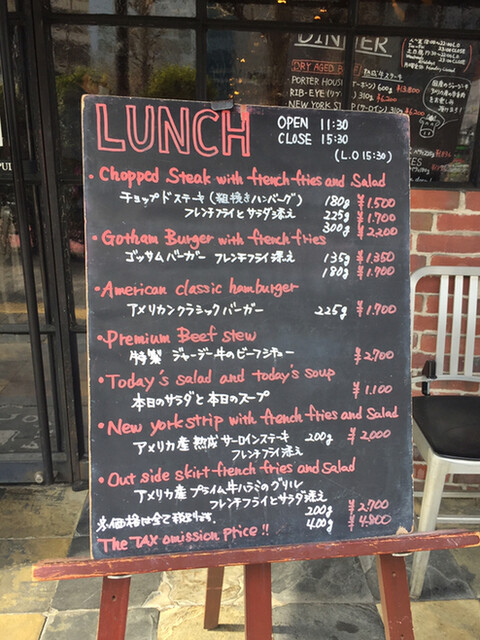 LUNCH
OPEN 11:30
CLOSE 15:30
(L.O 15:30)
・Chopped Steak with french fries and Salad
チョップドステーキ (粗挽きハンバーグ) 180g ¥1.500
フレンチフライとサラダ添え 225g ¥1.700
300g ¥2,200
・Gotham Burger with french fries
ゴッサムバーガー フレンチフライ添え 135g ¥1.350
180g ¥1.700
・American classic hamburger
アメリカンクラシックバーガー 225g ¥1.700
・Premium Beef stew
特製 ジャージー牛のビーフシチュー ¥2.700
・Today's salad and today's soup
本日のサラダと本日のスープ ¥1.100
・New york strip with french fries and Salad
アメリカ産 熟成 サーロインステーキ 200g ¥2,000
フレンチフライ添え
・Out side skirt french fries and salad
アメリカ産 プライム牛ハラミのグリル
フレンチフライとサラダ添え
200g ¥2.700
400g ¥4.800
※価格は全て税抜です。
The TAX omission price!!
DINNER
DRY AGED
PORTER HOUSE
600g ¥13.800
RIB-EYE
310g ¥6.200
NEW YORK
(サーロイン) 310g ¥6.200